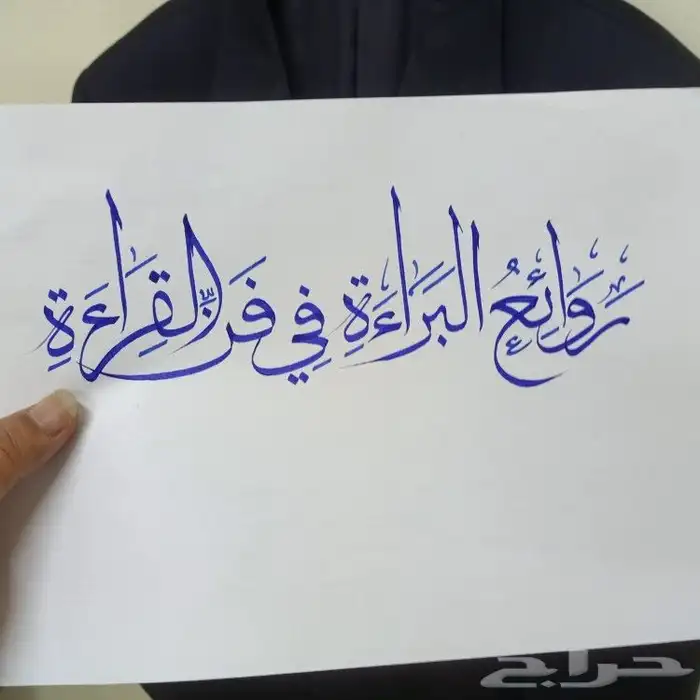 رَوَائِعُ البَرَاءَةِ فِي فَنِّ القِرَاءَةِ
حراج